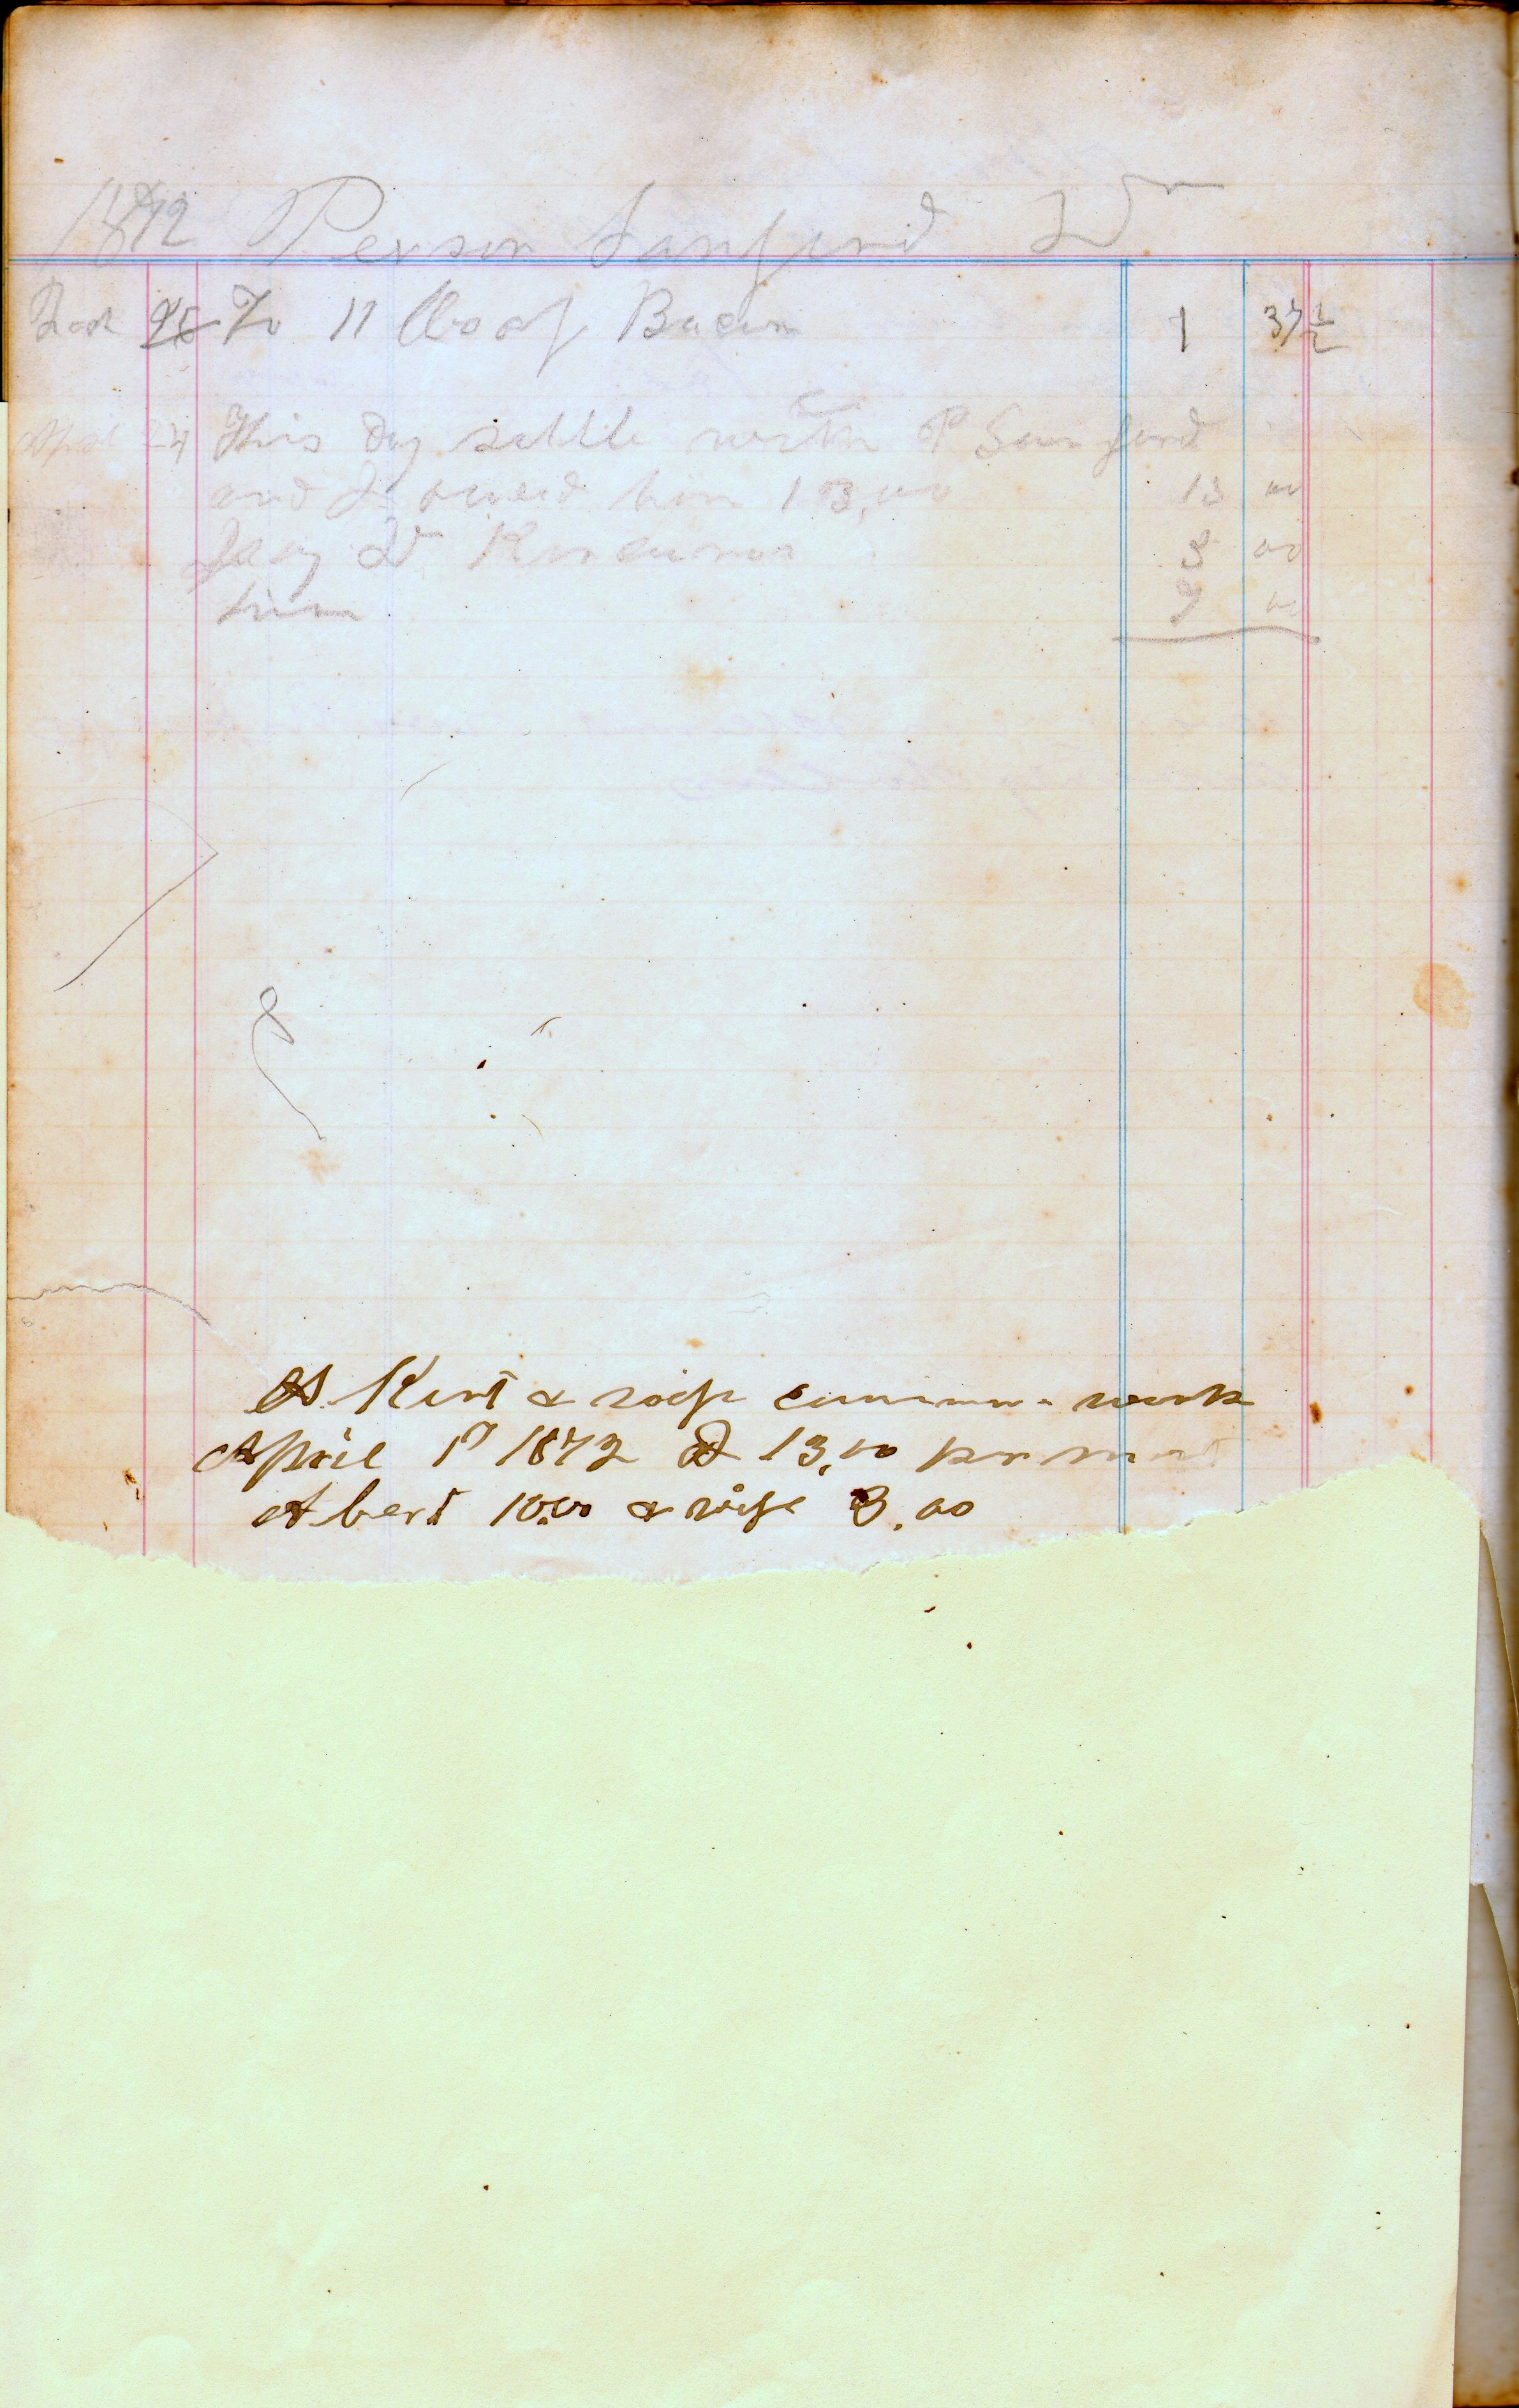 1872 Person Sanford Dr
To 11 lbs of Bacon 1 37 1/2
April 24 This day settle with P Sanford
and I owed him 13,00 13 00
00
00
A. Kent & wife commen work
April 1st 1872 @ 13,00 per
Albert 10.00 & wife 3.00